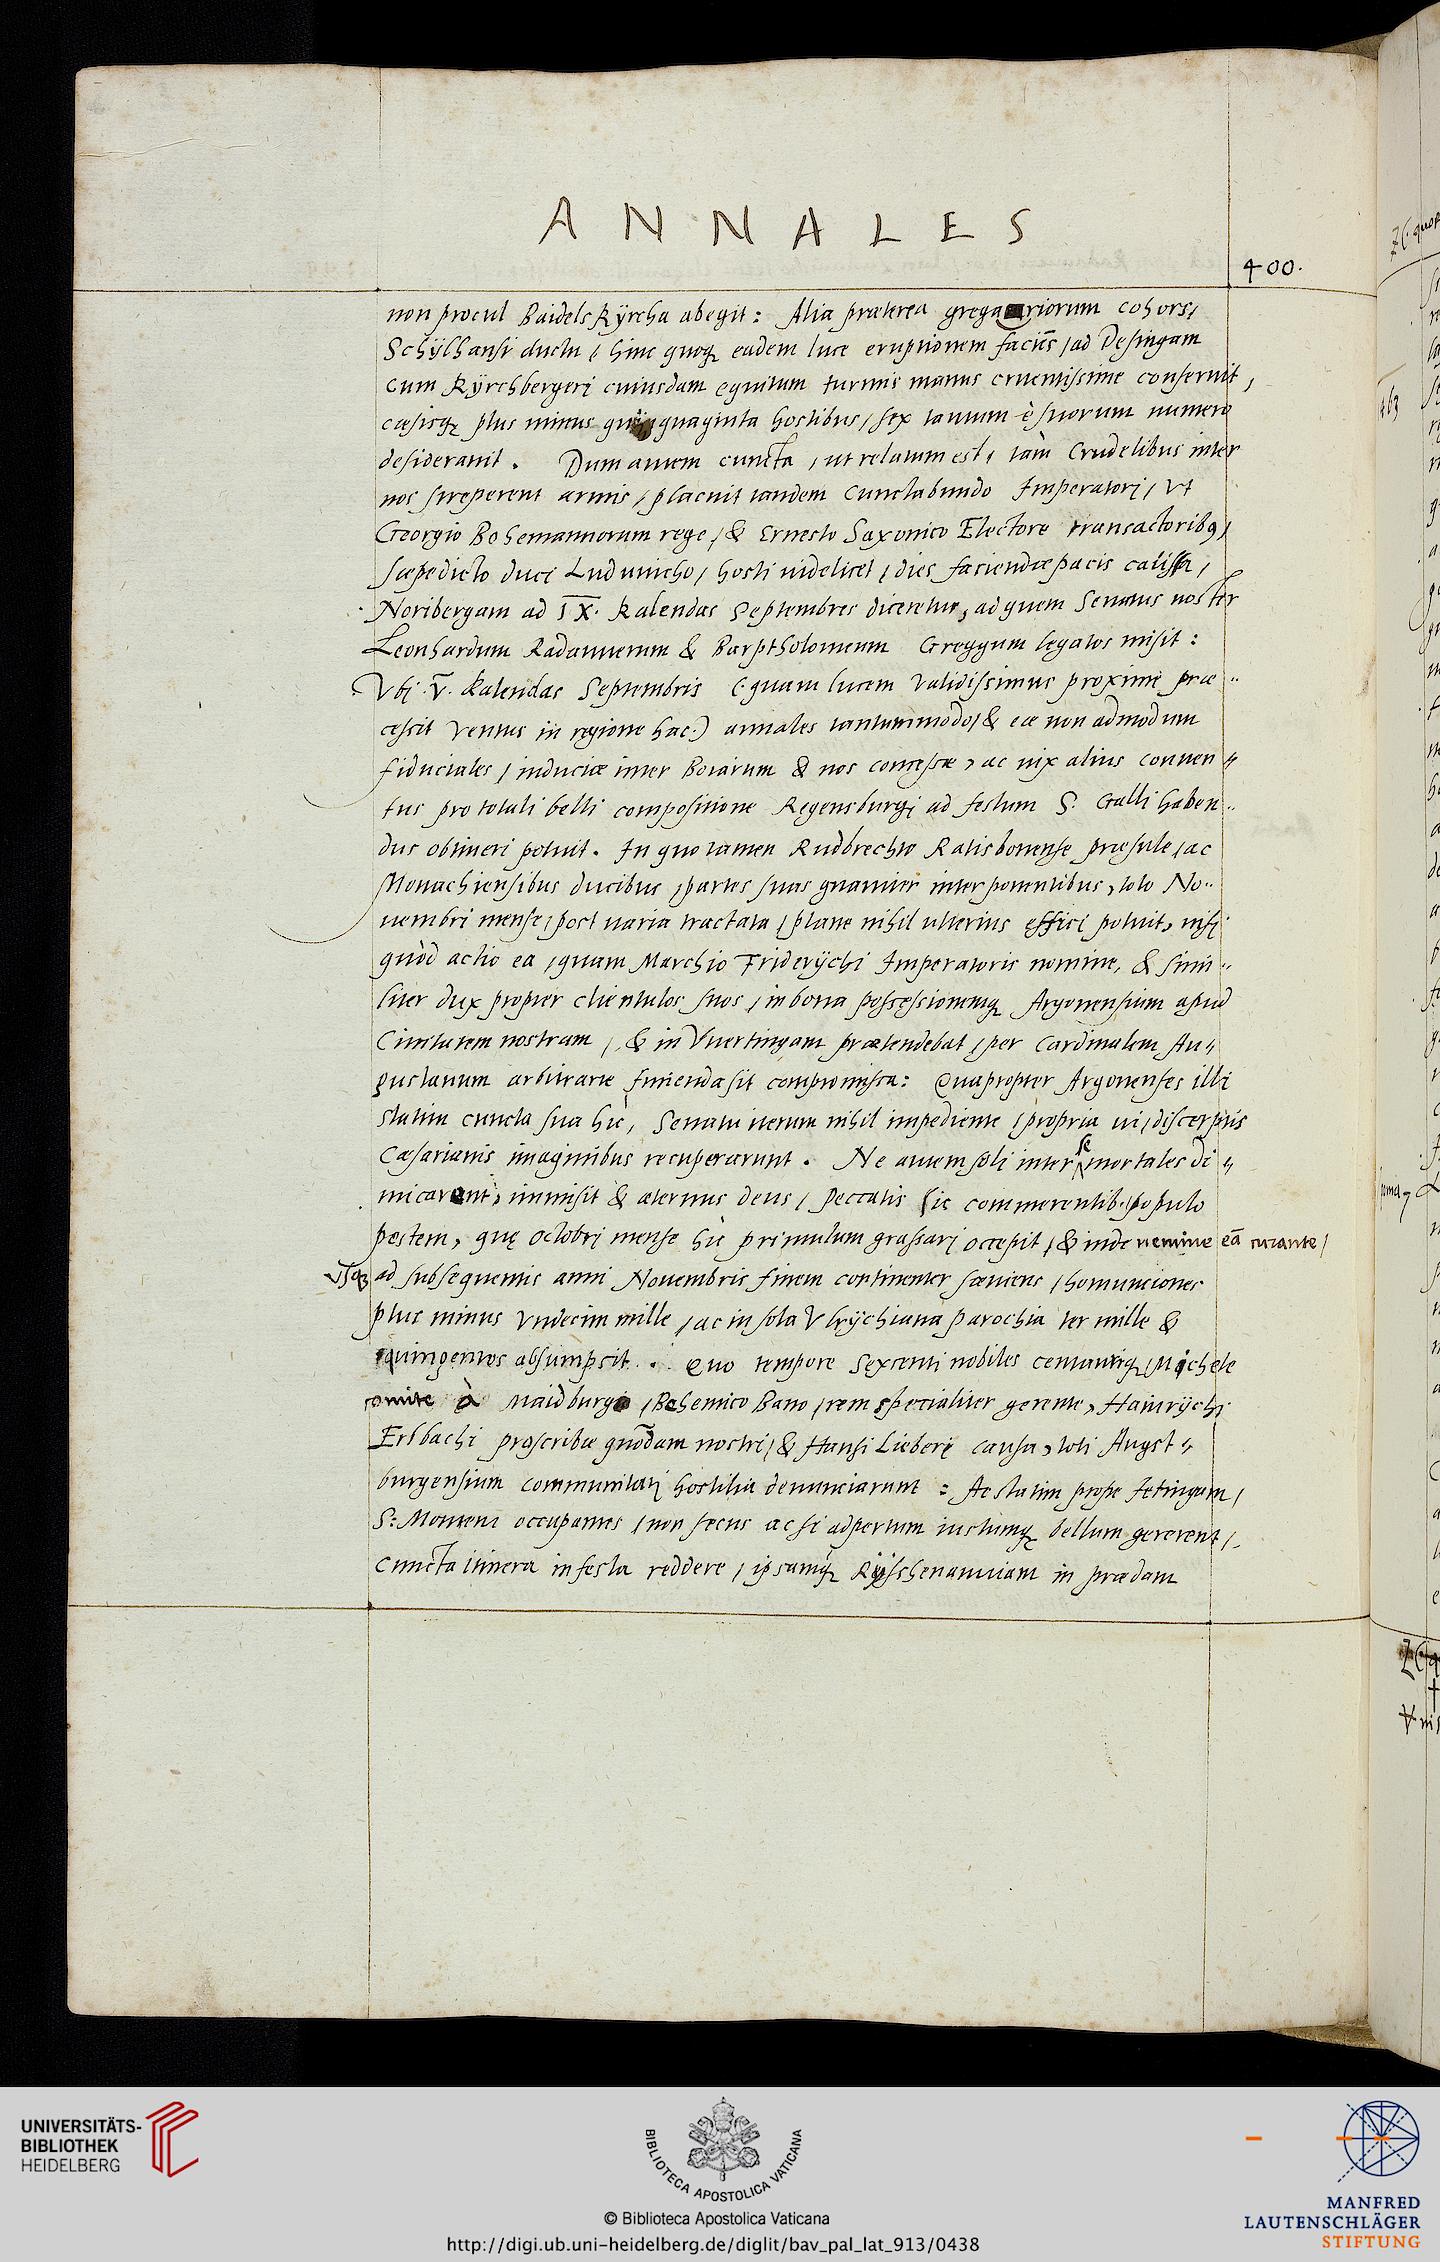 ANNALES
400.
non procul Baidelskÿrcha abegit: Alia præterea gregariorum cohors,
Schÿlhansi ductu, hinc quoq; eadem luce eruptionem faciẽs, ad Desingam
cum Kÿrchbergeri cuiusdam equitum turmis manus cruentissime conseruit,
cæsisq; plus minus quinquaginta hostibus, sex tantum è suorum numero
desiderauit. Dum autem cuncta, ut relatum est, tàm crudelibus inter
nos streperent armis, placuit tandem cunctabundo Imperatori, vt
Georgio Bohemannorum rege, & Ernesto Saxonico Electore transactoribꝯ,
sæpedicto duci Luduuicho, hosti uidelicet, dies faciendæ pacis caussa,
Noribergam ad IX. Kalendas Septembres diceretur, ad quem Senatus noster
Leonhardum Radauuerum & Barptholomeum Greggum legatos misit:
Vbi .V. Kalendas Septembris (quam lucem validissimus proxime præ-
cessit ventus in regione hac.) annales tantummodo, & eæ non admodum
fiduciales, induciæ inter Boiarum & nos concessæ, ac uix alius conuen-
tus pro totali belli compositione Regensburgi ad festum S. Galli haben-
dus obtineri potuit. In quo tamen Rudbrechto Ratisbonense præsule, ac
Monachiensibus ducibus, partes suas gnauiter interponentibus, toto No-
uembri mense, post uaria tractata, plane nihil ulterius effici potuit, nisi
quòd actio ea, quam Marchio Friderÿchi Imperatoris nomine, & simi-
liter dux propter clientulos suos, in bona possessionemq; Argonensium apud
Ciuitatem nostram, & in Vuertingam prætendebat, per Cardinalem Au-
gustanum arbitrarie finienda sit compromissa: Quapropter Argonenses illi
statim cuncta sua hic, Senatu iterum nihil impediente, propria ui, discerptis
Cæsarianis imaginibus recuperarunt. Ne autem soli inter se mortales di-
micarent, immisit & æternus deus, peccatis sic commerentib. populo
pestem, quę Octobri mense hic primulum grassari occepit, & inde nemine eã curante,
vsq; ad subsequentis anni Nouembris finem continenter sæuiens, homunciones
plus minus vndecim mille, ac in sola Vlrÿchiana parochia ter mille &
quingentos absumpsit. Quo tempore Sexcenti nobiles centauriq;, Michele
comite à Maidburgo, Bohemico Bano, rem specialiter gerente, Hainrÿchi
Erlbachi proscribæ quõdam nostri, & Hansi Lieberi causa, toti Augst-
burgensium communitati hostilia denunciarunt: Ac statim prope Tetingam,
S. Montem occupantes, non secus ac si adpertum iustumq; bellum gererent,
cuncta itinera infesta reddere, ipsamq; Rÿschenauuiam in prædam
UNIVERSITÄTS-
BIBLIOTHEK
HEIDELBERG
BIBLIOTECA APOSTOLICA VATICANA
© Biblioteca Apostolica Vaticana
http://digi.ub.uni-heidelberg.de/diglit/bav_pal_lat_913/0438
MANFRED
LAUTENSCHLÄGER
STIFTUNG